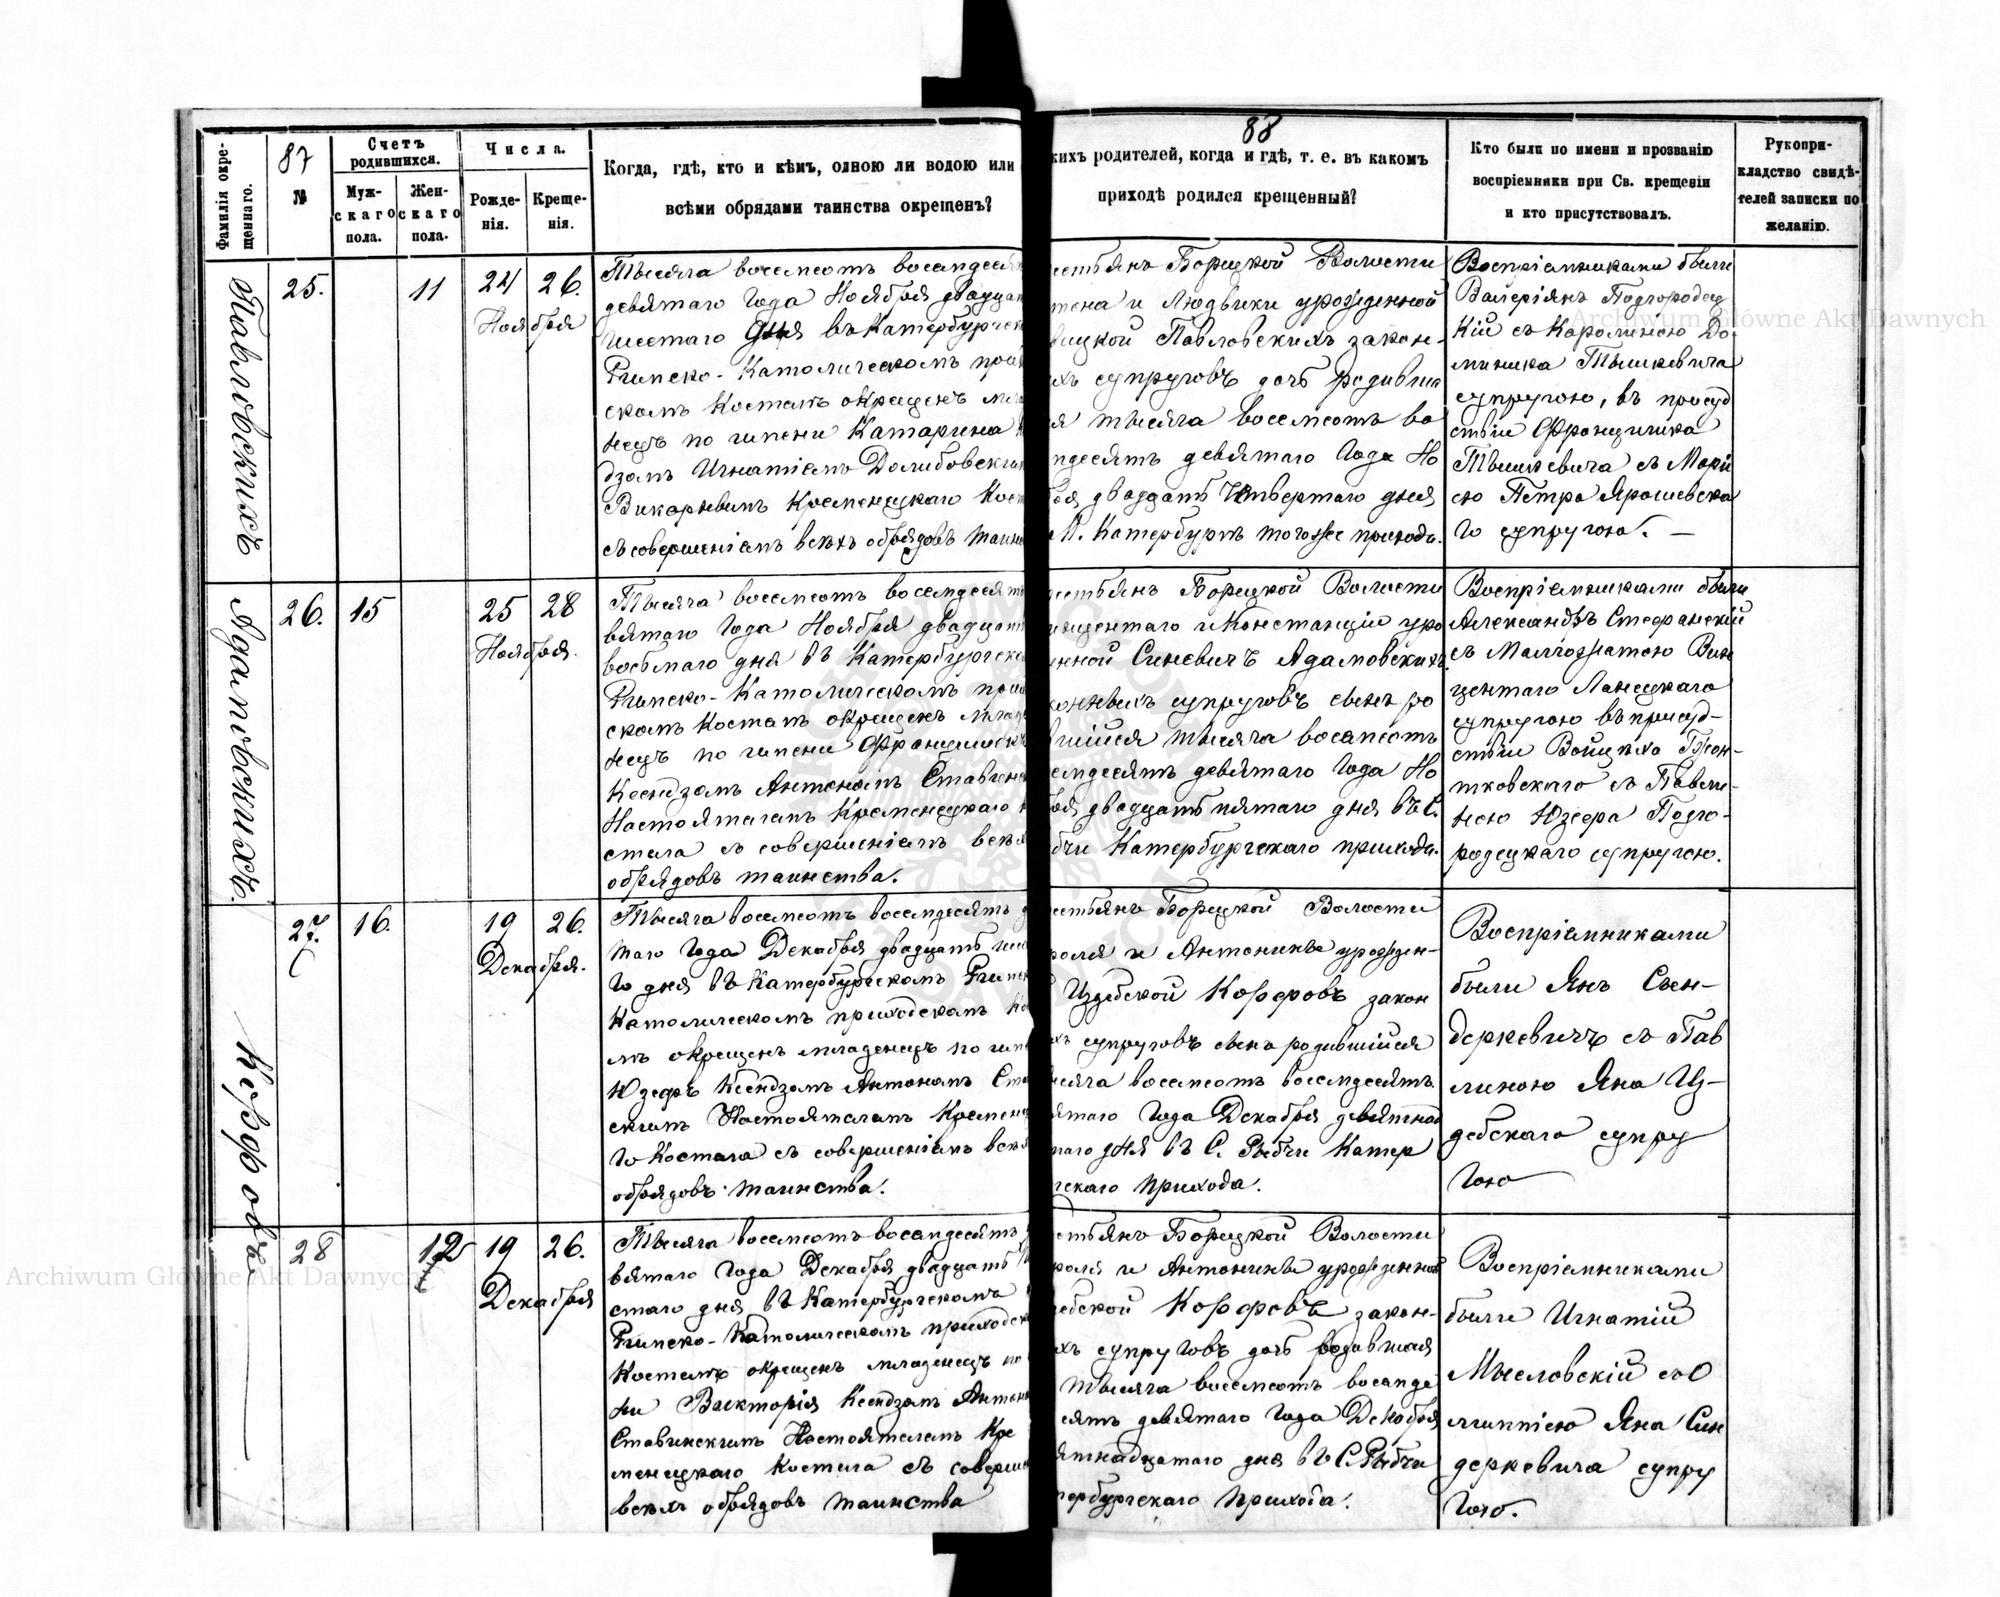 87
88
Фамилія окре-
щеннаго.
№
Счетъ
родившихся.
Муж-
скаго
пола.
Жен-
скаго
пола.
Числа.
Рожде-
нія.
Креще-
нія.
Когда, гдѣ, кто и кѣмъ, одною ли водою или
всѣми обрядами таинства окрещенъ?
кихъ родителей, когда и гдѣ, т. е. въ какомъ
приходѣ родился крещенный?
Кто были по имени и прозванію
воспріемники при Св. крещеніи
и кто присутствовалъ.
Рукопри-
кладство свидѣ-
телей записки по
желанію.
Павловскихъ
25.
11
24 26.
Ноября
Тысяча восемсотъ восемдесят
девятаго Года Ноября двадцат
шестаго Дня въ Катербургск
Римско-Католическомъ прих
скомъ Костелѣ окрещенъ мла
нецъ по имени Катаржина
дзомъ Игнатіемъ Долибовским
Викарнымъ Кременецкаго Кост
съ совершеніемъ всѣхъ обрядовъ таин
естьянъ Борецкой Волости
тена и Людвики урожденной
вицкой Павловскихъ закон-
хъ супруговъ дочь родивша
я тысяча восемсотъ во
мдесятъ девятаго Года Но
бря двадцать четвертаго дня
М. Катербургѣ тогоже прихода.
Воспріемниками были
Валеріянъ Подгородец
кій съ Каролиною До-
миника Тышкевича
супругою, въ присуд
ствіи Францишка
Тышкевича съ Марі
ею Петра Ярошевска
го супругою. —
Адамовскихъ.
26.
15
25 28
Ноября.
Тысяча восемсотъ восемдесят
вятаго Года Ноября двадцат
восьмаго дня въ Катербургско
Римско-Католическомъ прих
скомъ Костелѣ окрещенъ млад
нецъ по имени Францишек
Ксендзомъ Антономъ Ставинс
Настоятелемъ Кременецкаго К
стела съ совершеніемъ всѣх
обрядовъ таинства.
естьянъ Борецкой Волости
инцентаго и Констанціи уро
енной Синевичъ Адамовскихъ
конныхъ супруговъ сынъ ро
вшійся тысяча восемсотъ
семдесятъ девятаго Года Но
бря двадцать пятаго дня въ С.
бчи Катербургскаго прихода.
Воспріемниками были
Александръ Стефанскій
съ Малгожатою Вин
центаго Ланецкаго
супругою въ присуд-
ствіи Войцѣха Гжон-
тковскаго съ Павли-
ною Юзефа Подго-
родецкаго супругою.
27.
16.
19 26.
Декабря.
Тысяча восемсотъ восемдесятъ д
таго Года Декабря двадцать шес
го дня въ Катербургскомъ Римск
Католическомъ приходскомъ Ко
лѣ окрещенъ младенецъ по име
Юзефъ Ксендзомъ Антономъ Ста
скимъ Настоятелемъ Кременец
го Костела съ совершеніемъ всѣх
обрядовъ таинства.
естьянъ Борецкой Волости
роля и Антонины урожден-
й Издебской Кофровъ закон
хъ супруговъ сынъ родившійся
ысяча восемсотъ восемдесятъ
вятаго Года Декабря девятнад
таго дня въ С. Рыбчи Катер
гскаго Прихода.
Воспріемниками
были Янъ Сен-
деркевичъ съ Пав
линою Яна Из-
дебскаго супру
гою
Кофровъ.
28
12
19 26.
Декабря
Тысяча восемсотъ восемдесятъ
вятаго Года Декабря двадцать
стаго дня въ Катербургскомъ
Римско-Католическомъ приходск
Костелѣ окрещенъ младенецъ по
ни Викторія Ксендзомъ Антон
Ставинскимъ Настоятелемъ Кре
менецкаго Костела съ соверше
всѣхъ обрядовъ таинства
естьянъ Борецкой Волости
роля и Антонины урожденной
ебской Кофровъ закон-
хъ супруговъ дочь родившая
тысяча восемсотъ восемде
сятъ девятаго Года Декабря
ятнадцатаго дня въ С. Рыбчи
тербургскаго Прихода.
Воспріемниками
были Игнатій
Мысловскій съ
Яна Сен
деркевича супру
гою.
Archiwum Główne Akt Dawnych
Archiwum Główne Akt Dawnych